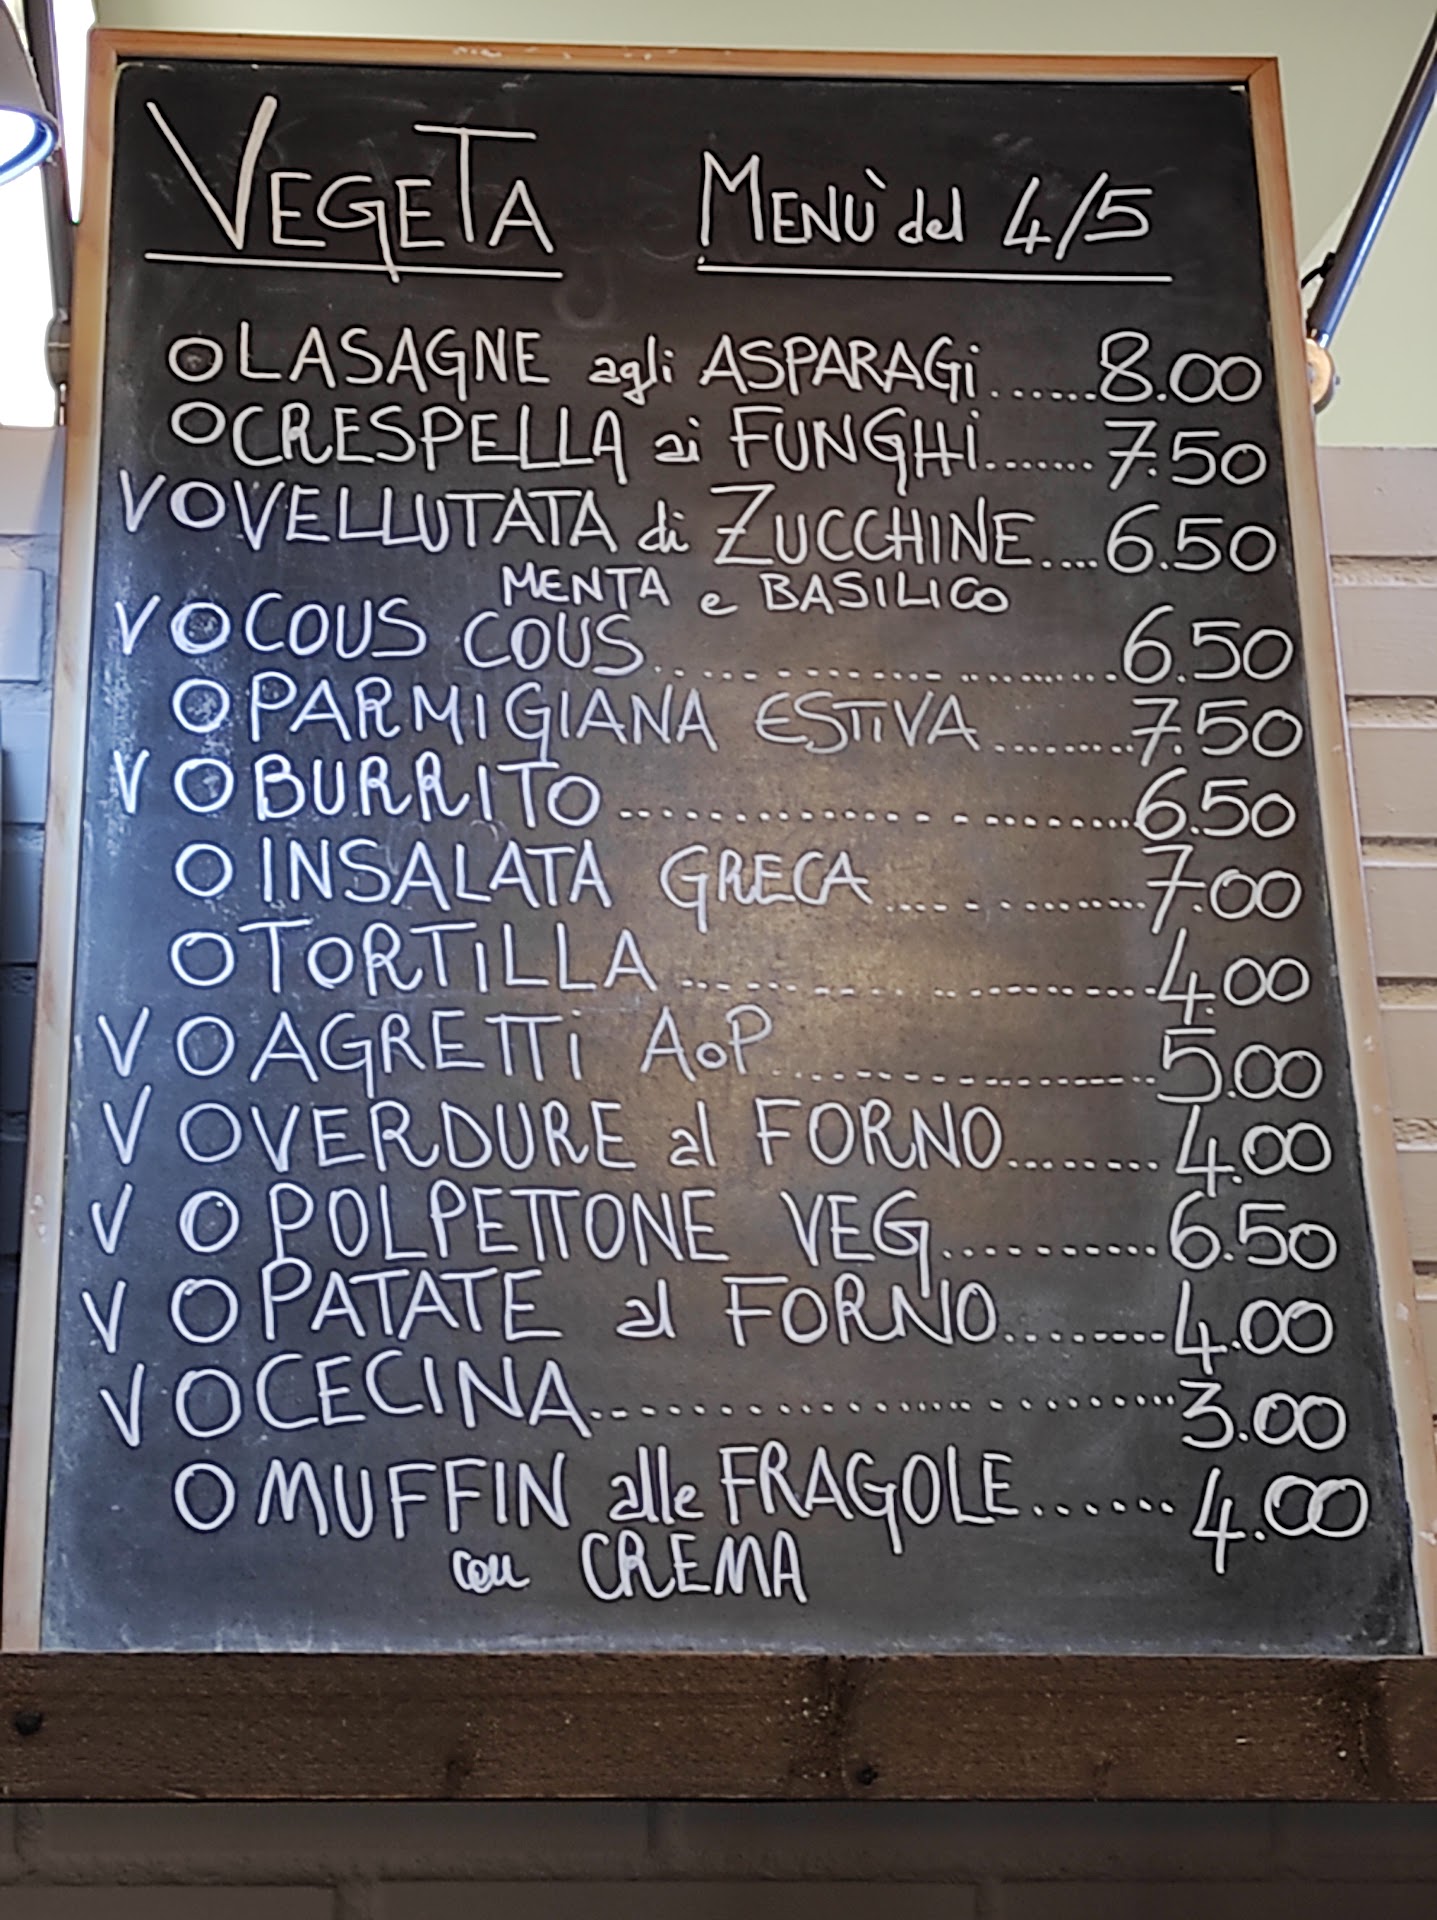 VEGETA MENÙ del 4/5
O LASAGNE agli ASPARAGi......8.00
O CRESPELLA ai FUNGHi.......7.50
V O VELLUTATA di ZUCCHINE....6.50
MENTA e BASILICO
V O COUS COUS....................6.50
O PARMIGIANA ESTIVA.........7.50
V O BURRITO..........................6.50
O INSALATA GRECA................7.00
O TORTiLLA..........................4.00
V O AGRETTi AoP....................5.00
V O VERDURE al FORNO........4.00
V O POLPETTONE VEG...........6.50
V O PATATE al FORNO........4.00
V O CECINA..............................3.00
O MUFFIN alle FRAGOLE......4.00
con CREMA